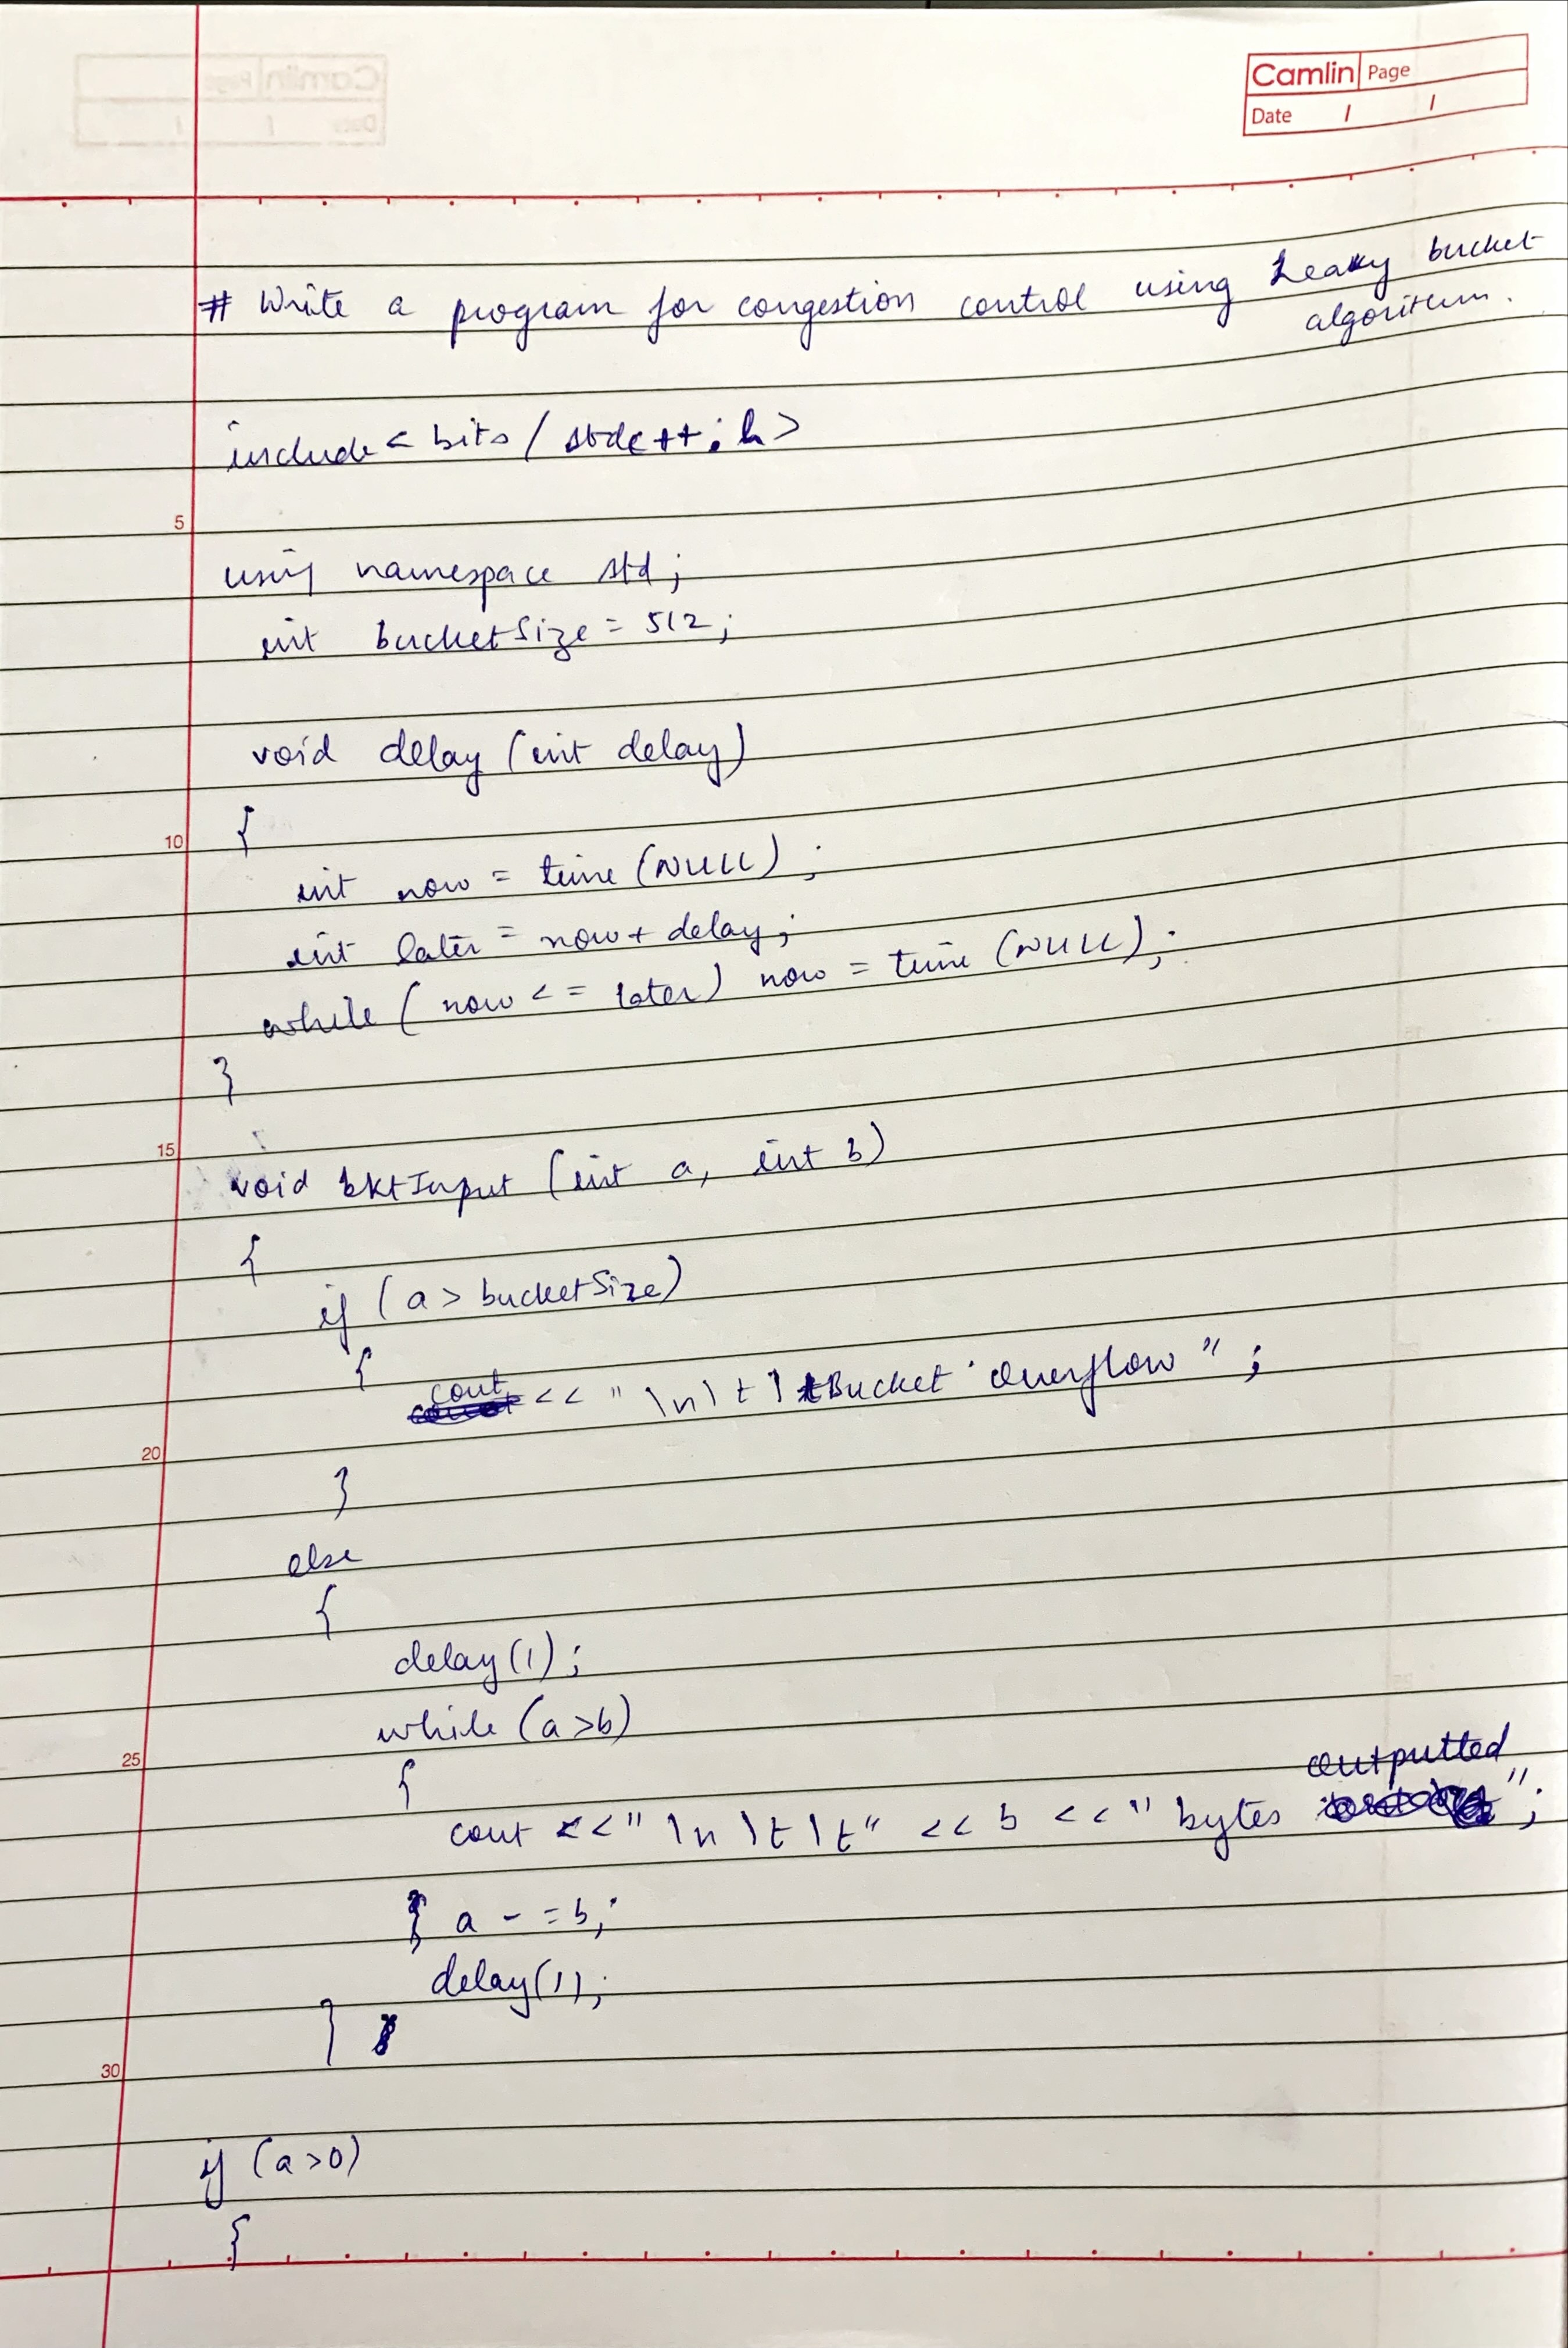 Camlin Page
Date / /
# Write a program for congestion control using Leaky bucket
algorithm.
include < bits / stdc++.h >
5
using namespace std;
int bucketSize = 512;
void delay (int delay)
{
10
int now = time (NULL);
int later = now + delay;
while ( now <= later) now = time (NULL);
}
15
void bktInput (int a, int b)
{
if (a > bucketSize)
{
cout << "\n\t\tBucket Overflow";
20
}
else
{
delay(1);
while (a>b)
25
{
cout <<"\n\t\t" << b <<" bytes outputted";
a -= b;
delay(1);
}
30
if (a>0)
{